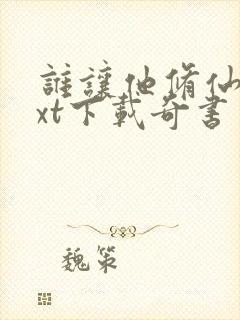 誰讓他脩仙t
xt下載奇書
魏策